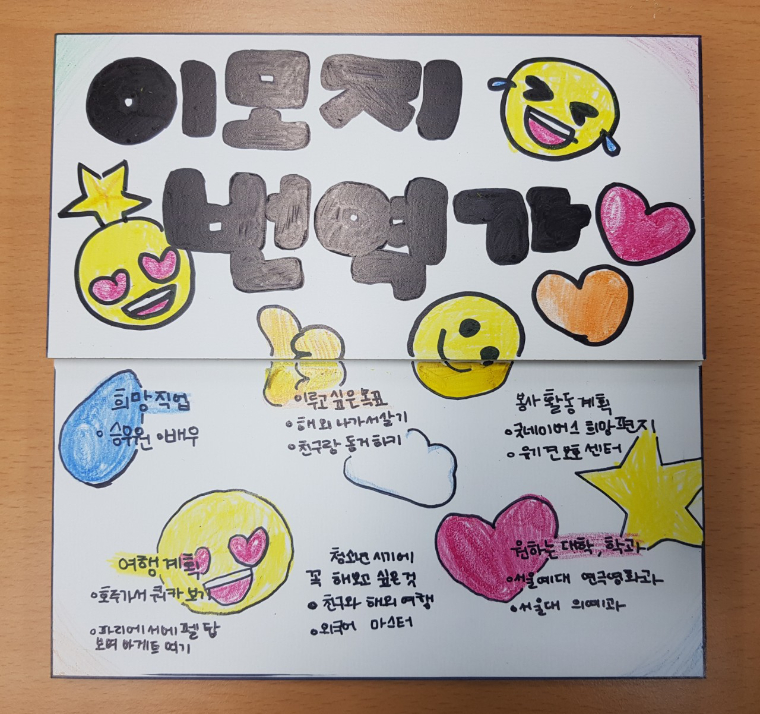 이모지
번역가
희망직업
승무원 • 배우
이루고 싶은 목표
• 해외 나가서 살기
• 친구랑 동거하기
봉사 활동 계획
• 굿네이버스 희망편지
• 유기견 보호 센터
여행 계획
• 호주가서 쿼카 보기
• 파리에서 에펠탑
보며 바게트 먹기
청소년 시기에
꼭 해보고 싶은것
• 친구와 해외 여행
• 외국어 마스터
원하는 대학, 학과
• 서울예대 연극영화과
• 서울대 의예과